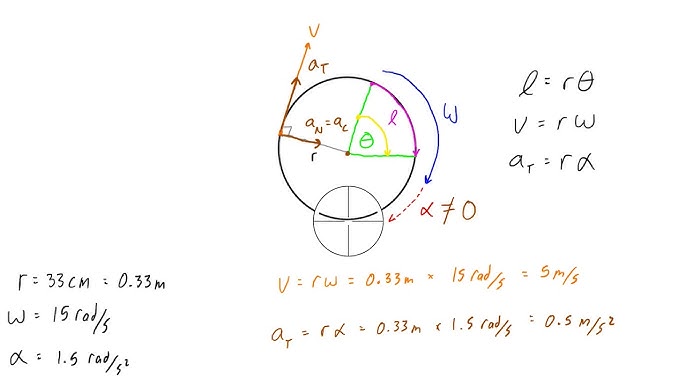 V
a_T
a_N = a_c
r
θ
l
ω
α ≠ 0
l = rθ
v = rω
a_T = rα
r = 33cm = 0.33m
ω = 15 rad/s
α = 1.5 rad/s²
v = rω = 0.33m × 15 rad/s = 5 m/s
a_T = rα = 0.33m × 1.5 rad/s = 0.5 m/s²